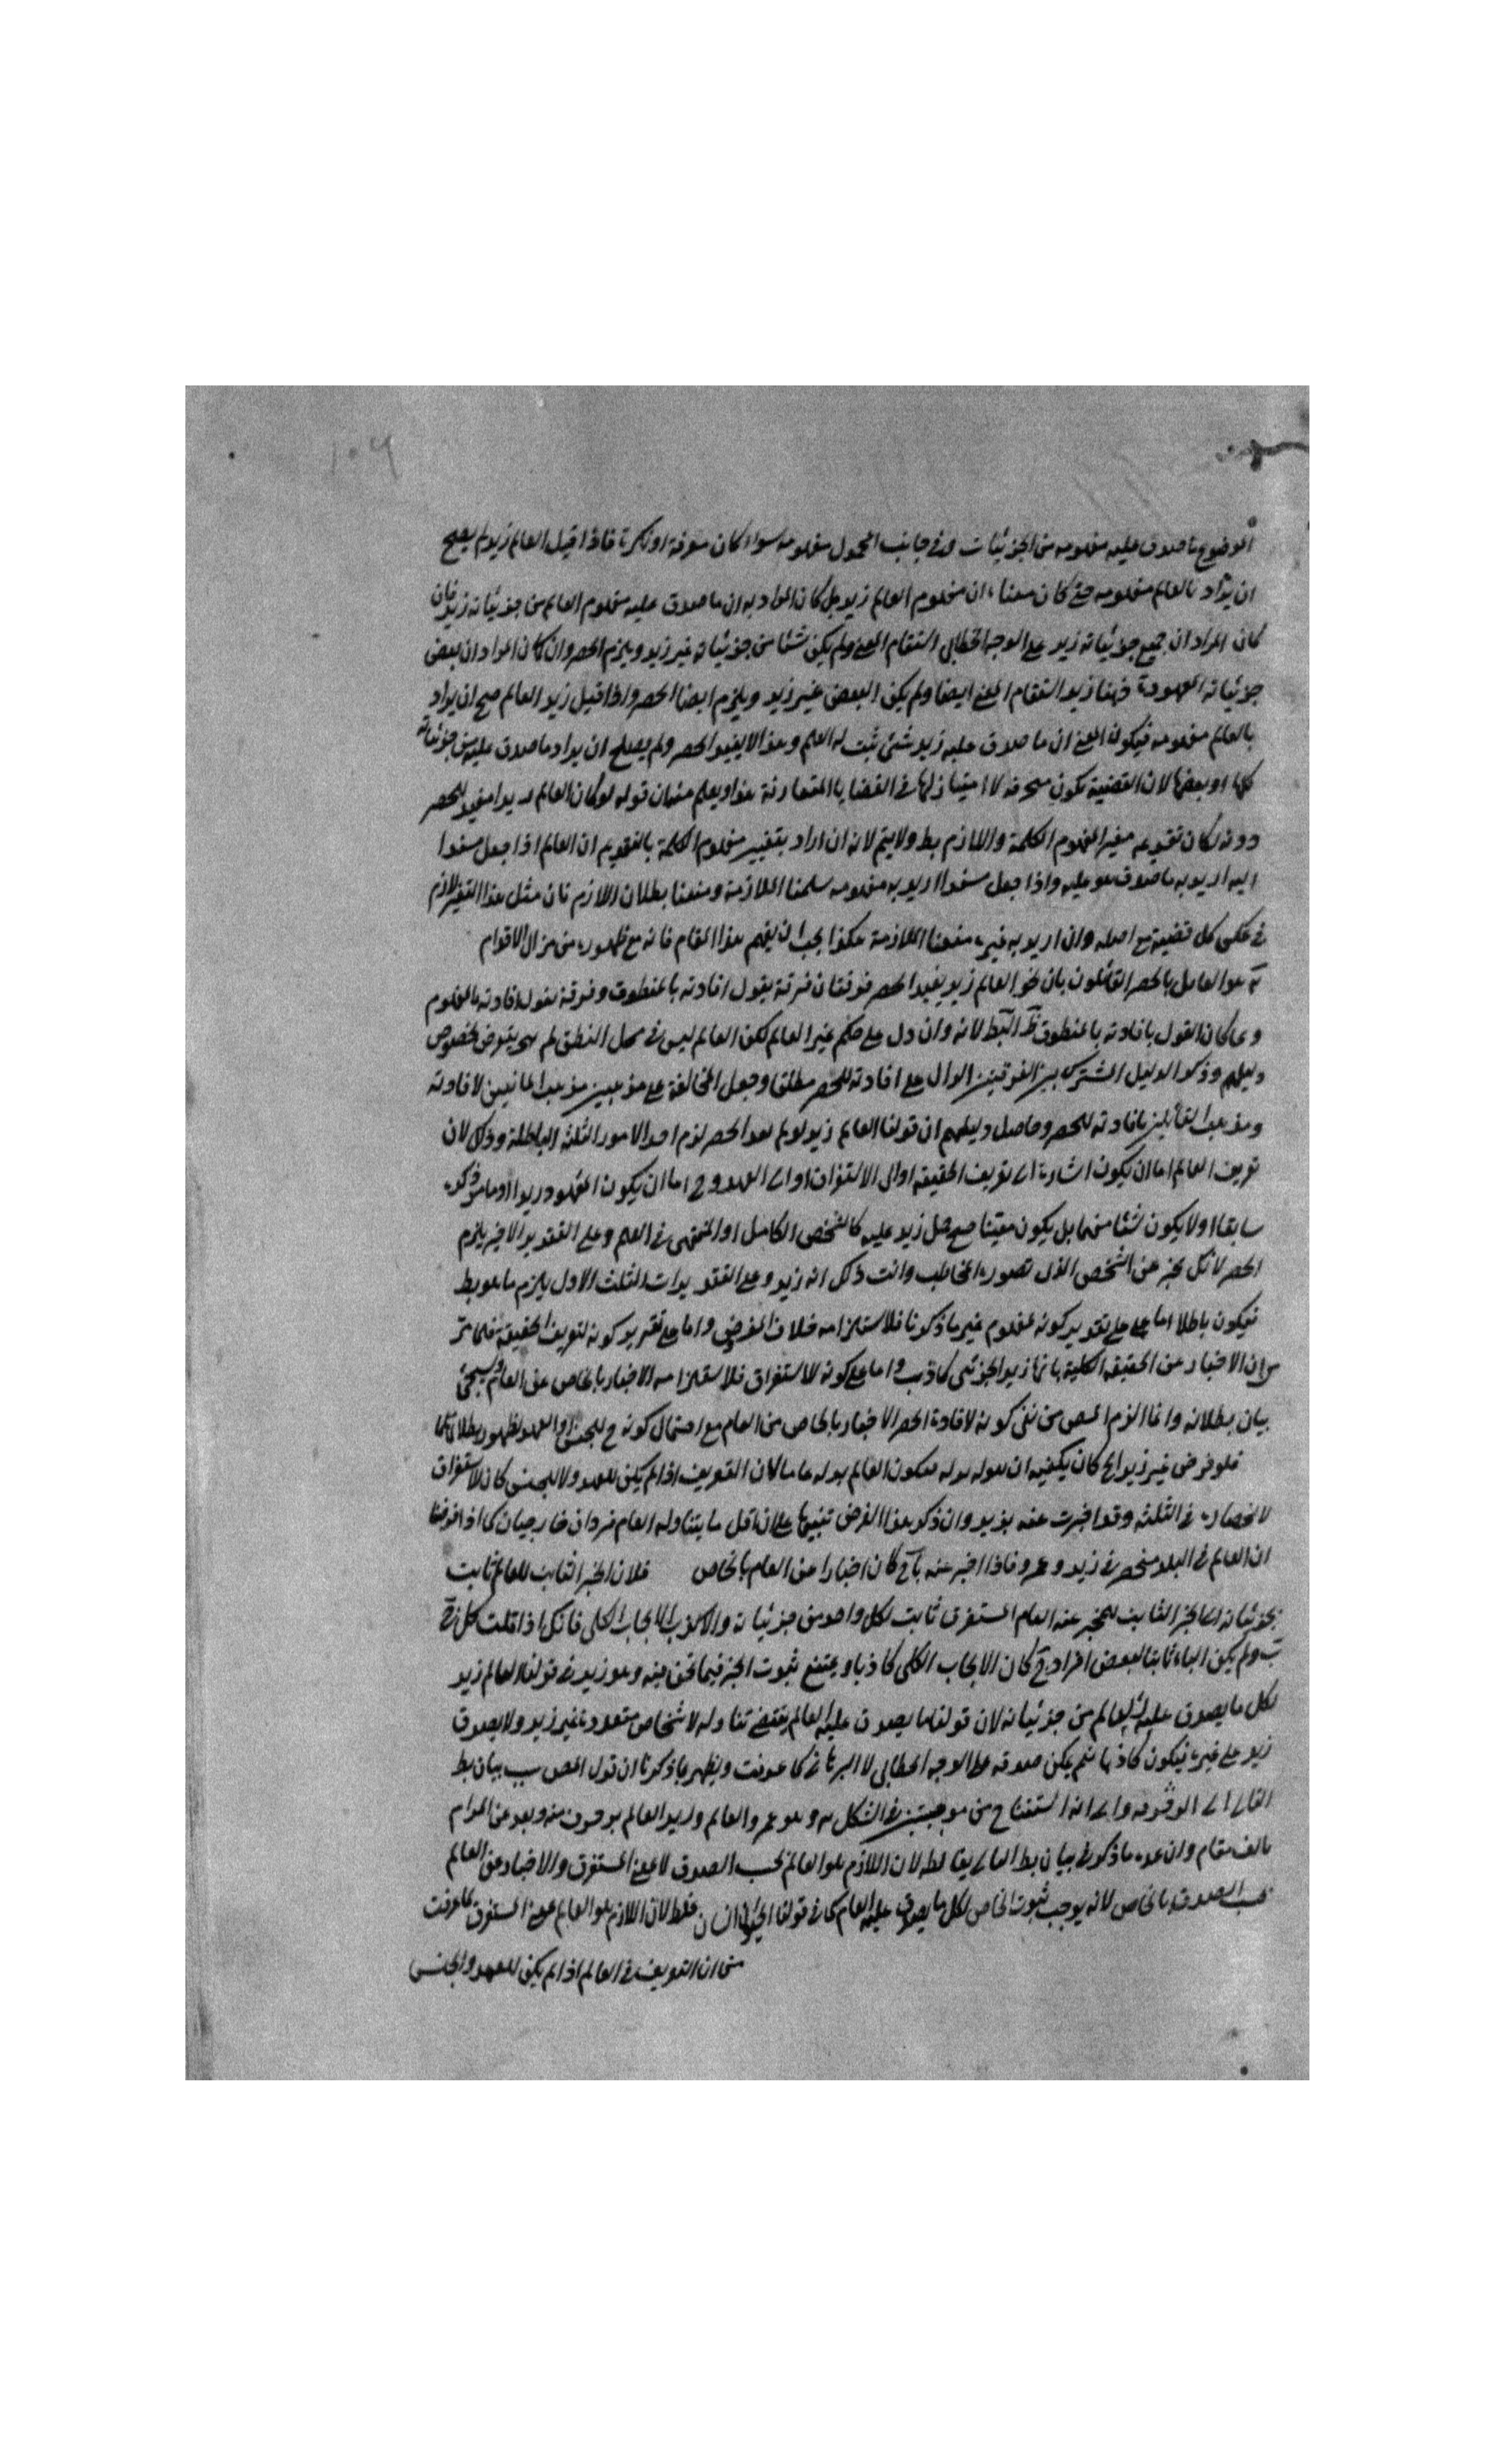 ١٠٩
الموضوع ما صدق عليه مفهومه من الجزئيات وفي جانب المحمول مفهومه سواء كان معرفة او نكرة فاذا قيل العالم زيد لم يصح
ان يراد بالعالم مفهومه حتى كان معناه ان مفهوم العالم زيد بل كان المراد به ان ما صدق عليه مفهوم العالم من جزئياته زيد فان
كان المراد ان جميع جزئياته زيد على الوجه الخطابي استقام المعنى ولم يكن شئا من جزئياته غير زيد ويلزم الحصر وان كان المراد ان بعض
جزئياته المعهودة فهنا زيد استقام المعنى ايضا ولم يكن البعض غير زيد ويلزم ايضا الحصر واذا قيل زيد العالم صح ان يراد
بالعالم مفهومه فيكون المعنى ان ما صدق عليه زيد شئ ثبت له العلم وهذا لا يفيد الحصر ولم يصلح ان يراد ما صدق عليه من جزئياته
كلها او بعضها لان القضية تكون منحرفة لا امتياز لها في القضايا المتعارفة هذا ويعلم منه ان قوله لو كان العالم زيدا مفيدا للحصر
دونه لكان تقديمه مغيرا لمفهوم الكلمة واللازم بط ولا يتم لانه ان اراد بتغيير مفهوم الكلمة بالتقديم ان العالم اذا جعل مسندا
اليه اريد به ما صدق هو عليه واذا جعل مسندا اريد به مفهومه سلمنا الملازمة ومنعنا بطلان اللازم فان مثل هذا التغير لازم
في عكس كل قضية مع اصله وان اريد به غيره منعنا الملازمة هكذا يجب ان يفهم هذا المقام فانه مع ظهوره من مزال الاقدام
القائلون بان نحو العالم زيد يفيد الحصر فرقتان فرقة يقول افادته بالمنطوق وفرقة يقول افادته بالمفهوم
ولما كان القول بافادته بالمنطوق لانه وان دل على حكم غير العالم لكن العالم ليس في محل النطق لم يتعرض لخصوص
دليلهم وذكر الدليل المشترك بين الفرقتين الدال على افادته للحصر مطلقا وجعل المخالفة على مذهبين مذهب المانعين لافادته
ومذهب القائلين بافادته للحصر وحاصل دليلهم ان قولنا العالم زيد لو لم يفد الحصر لزم احد الامور الثلثة الباطلة وذلك لان
تعريف العالم اما ان يكون اشارة الى تعريف الحقيقة او الى الاستغراق او الى العهد وح اما ان يكون المعهود زيدا او ما مر ذكره
سابقا او لا يكون شئا منهما بل يكون معينا صح حمل زيد عليه كالشخص الكامل او المنتهى في العلم وعلى التقدير الاخير يلزم
الحصر لانك تخبر عن الشخص الذى تصوره المخاطب وانت ذلك انه زيد وعلى التقديرات الثلث الاول يلزم ما هو بط
فيكون باطلا اما على تقدير كونه لمفهوم غير ما ذكرنا فلاستلزامه خلاف المفروض واما على تقدير كونه لتعريف الحقيقة فلما مر
من ان الاخبار عن الحقيقة الكلية بانها زيد الجزئى كاذب واما على كونه للاستغراق فلاستلزامه الاخبار بالخاص عن العام وسيجئ
بيان بطلانه وانما الزم المص من نفى كونه لافادة الحصر الاخبار بالخاص من العام مع احتمال كونه ح للجنس او العهد لظهور بطلانهما
فلو فرض غير زيد الخ كان يكفيه ان يكون العالم عاما لان التعريف اذا لم يكن للعهد ولا للجنس كان للاستغراق
لانحصاره في الثلثة وقد اخبرت عنه بزيد وان ذكر هذا الفرض تنبيها على ان اقل ما يتناوله العام فردان خارجيان كما اذا فرضنا
ان العالم في البلد منحصر في زيد وعمرو فاذا اخبر عنه كان اخبارا عن العام بالخاص فلان الخبر الثابت للعالم ثابت
بجزئياته الخبر الثابت للمخبر عنه العام المستغرق ثابت لكل واحد من جزئياته والا كذب الايجاب الكلى فانك اذا قلت كل ج
ب ولم يكن الباء ثابتا لبعض افراد ج كان الايجاب الكلى كاذبا ويمتنع ثبوت الخبر فيما نحن فيه وهو زيد في قولنا العالم زيد
لكل ما يصدق عليه العالم من جزئياته لان قولنا ما يصدق عليه العالم يقتضى تناوله لاشخاص متعددة غير زيد ولا يصدق
زيد على غيره فيكون كاذبا نعم يمكن صدقه على الوجه الخطابي لا البرهاني كما عرفت ويظهر بما ذكرنا ان قول المص بيان بط
الثانى وانه استنتاج من موجبتين في الشكل وهو عمرو العالم وزيد العالم وبعد عن المرام
بالف مقام وان عده ما ذكر في بيان بط لان اللازم هو العالم بحسب الصدق لا بمعنى المستغرق والاخبار عن العالم
بحسب الصدق بالخاص لانه يوجب ثبوت الخاص لكل ما يصدق عليه العام كما في قولنا الحيوان انسان غلط لان اللازم هو العالم بمعنى المستغرق كما عرفت
من ان التعريف في العالم اذا لم يكن للعهد والجنس